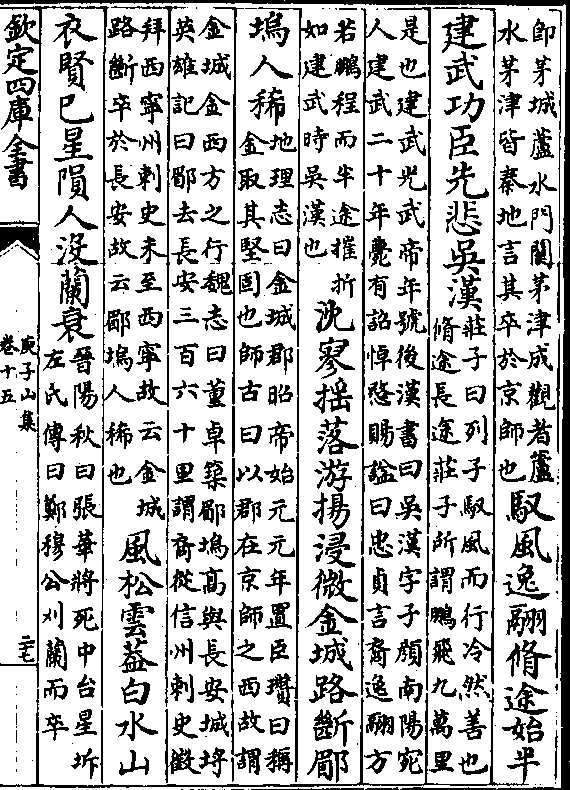 即茅城蘆水門闗茅津成觀者蘆
水茅津皆秦地言其卒於京師也
馭風逸翮脩途始半
建武功臣先悲吳漢
莊子曰列子馭風而行冷然善也
脩途長途莊子所謂鵬飛九萬里
是也建武光武帝年號後漢書曰吳漢字子顔南陽宛
人建武二十年薨有詔悼愍賜諡曰忠貞言裔逸翮方
若鵬程而半途摧折
如建武時吳漢也
沈寥揺落游揚浸微金城路斷郿
塢人稀
地理志曰金城郡昭帝始元元年置臣瓚曰稱
金取其堅固也師古曰以郡在京師之西故謂
金城金西方之行魏志曰董卓築郿塢髙與長安城埓
英雄記曰郿去長安三百六十里謂裔從信州刺史徴
拜西寧州刺史未至西寧故云金城
路斷卒於長安故云郿塢人稀也
風松雲葢白水山
衣賢已星隕人没蘭衰
晉陽秋曰張華將死中台星坼
左氏傳曰鄭穆公刈蘭而卒
欽定四庫全書
庾子山集
卷十五
二七